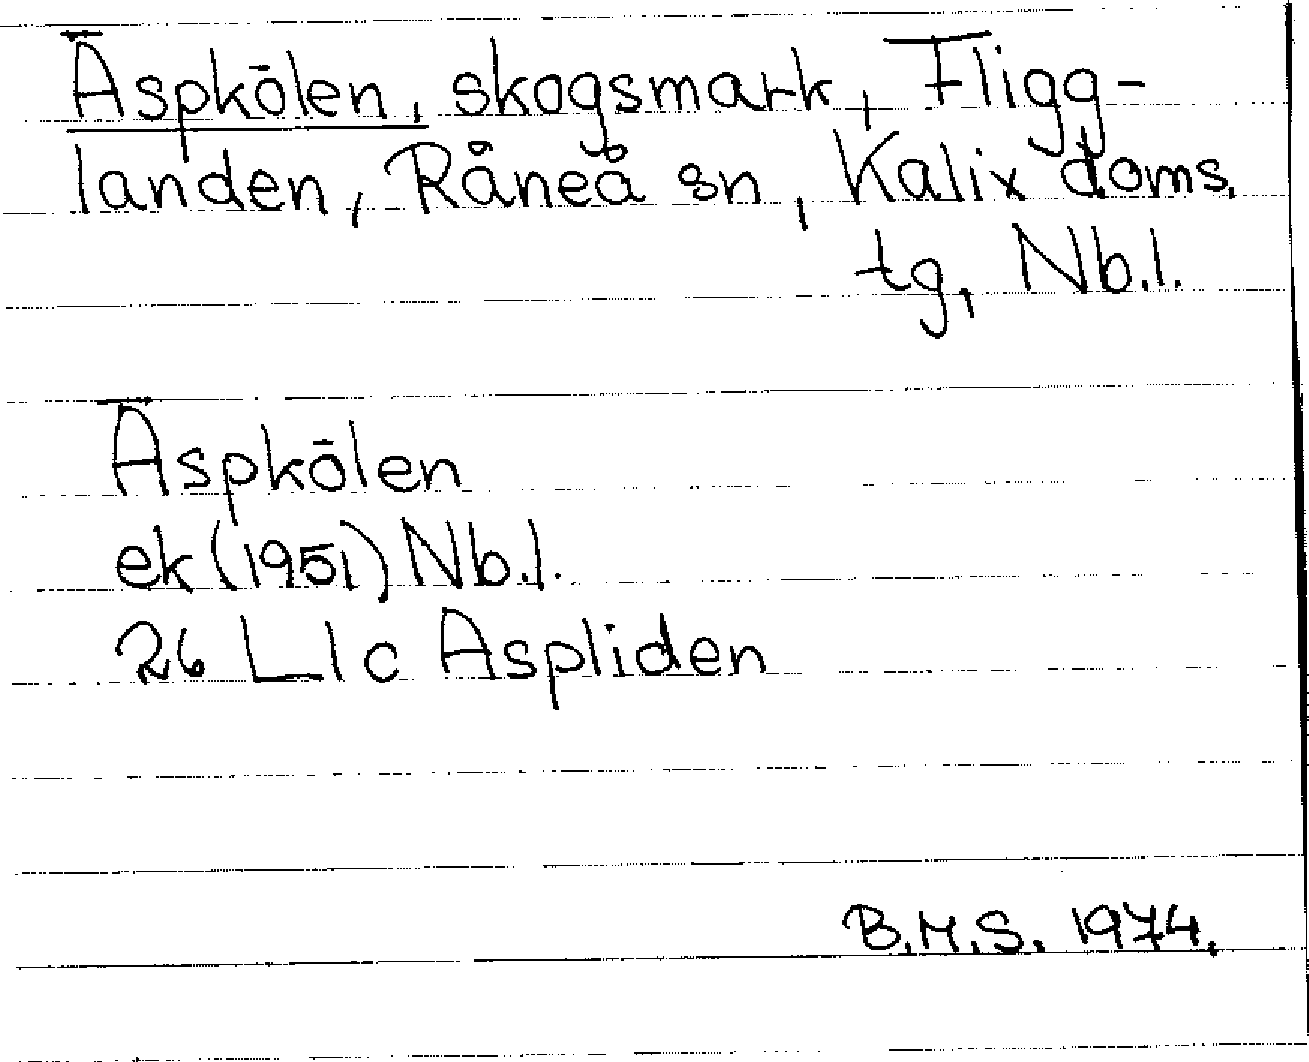 Āspkōlen, skogsmark, Fligg-
landen, Råneå sn, Kalix doms.
tg, Nb.l.
Āspkōlen
ek (1951) Nb.l.
26 L 1 c Aspliden
B.M.S. 1974.